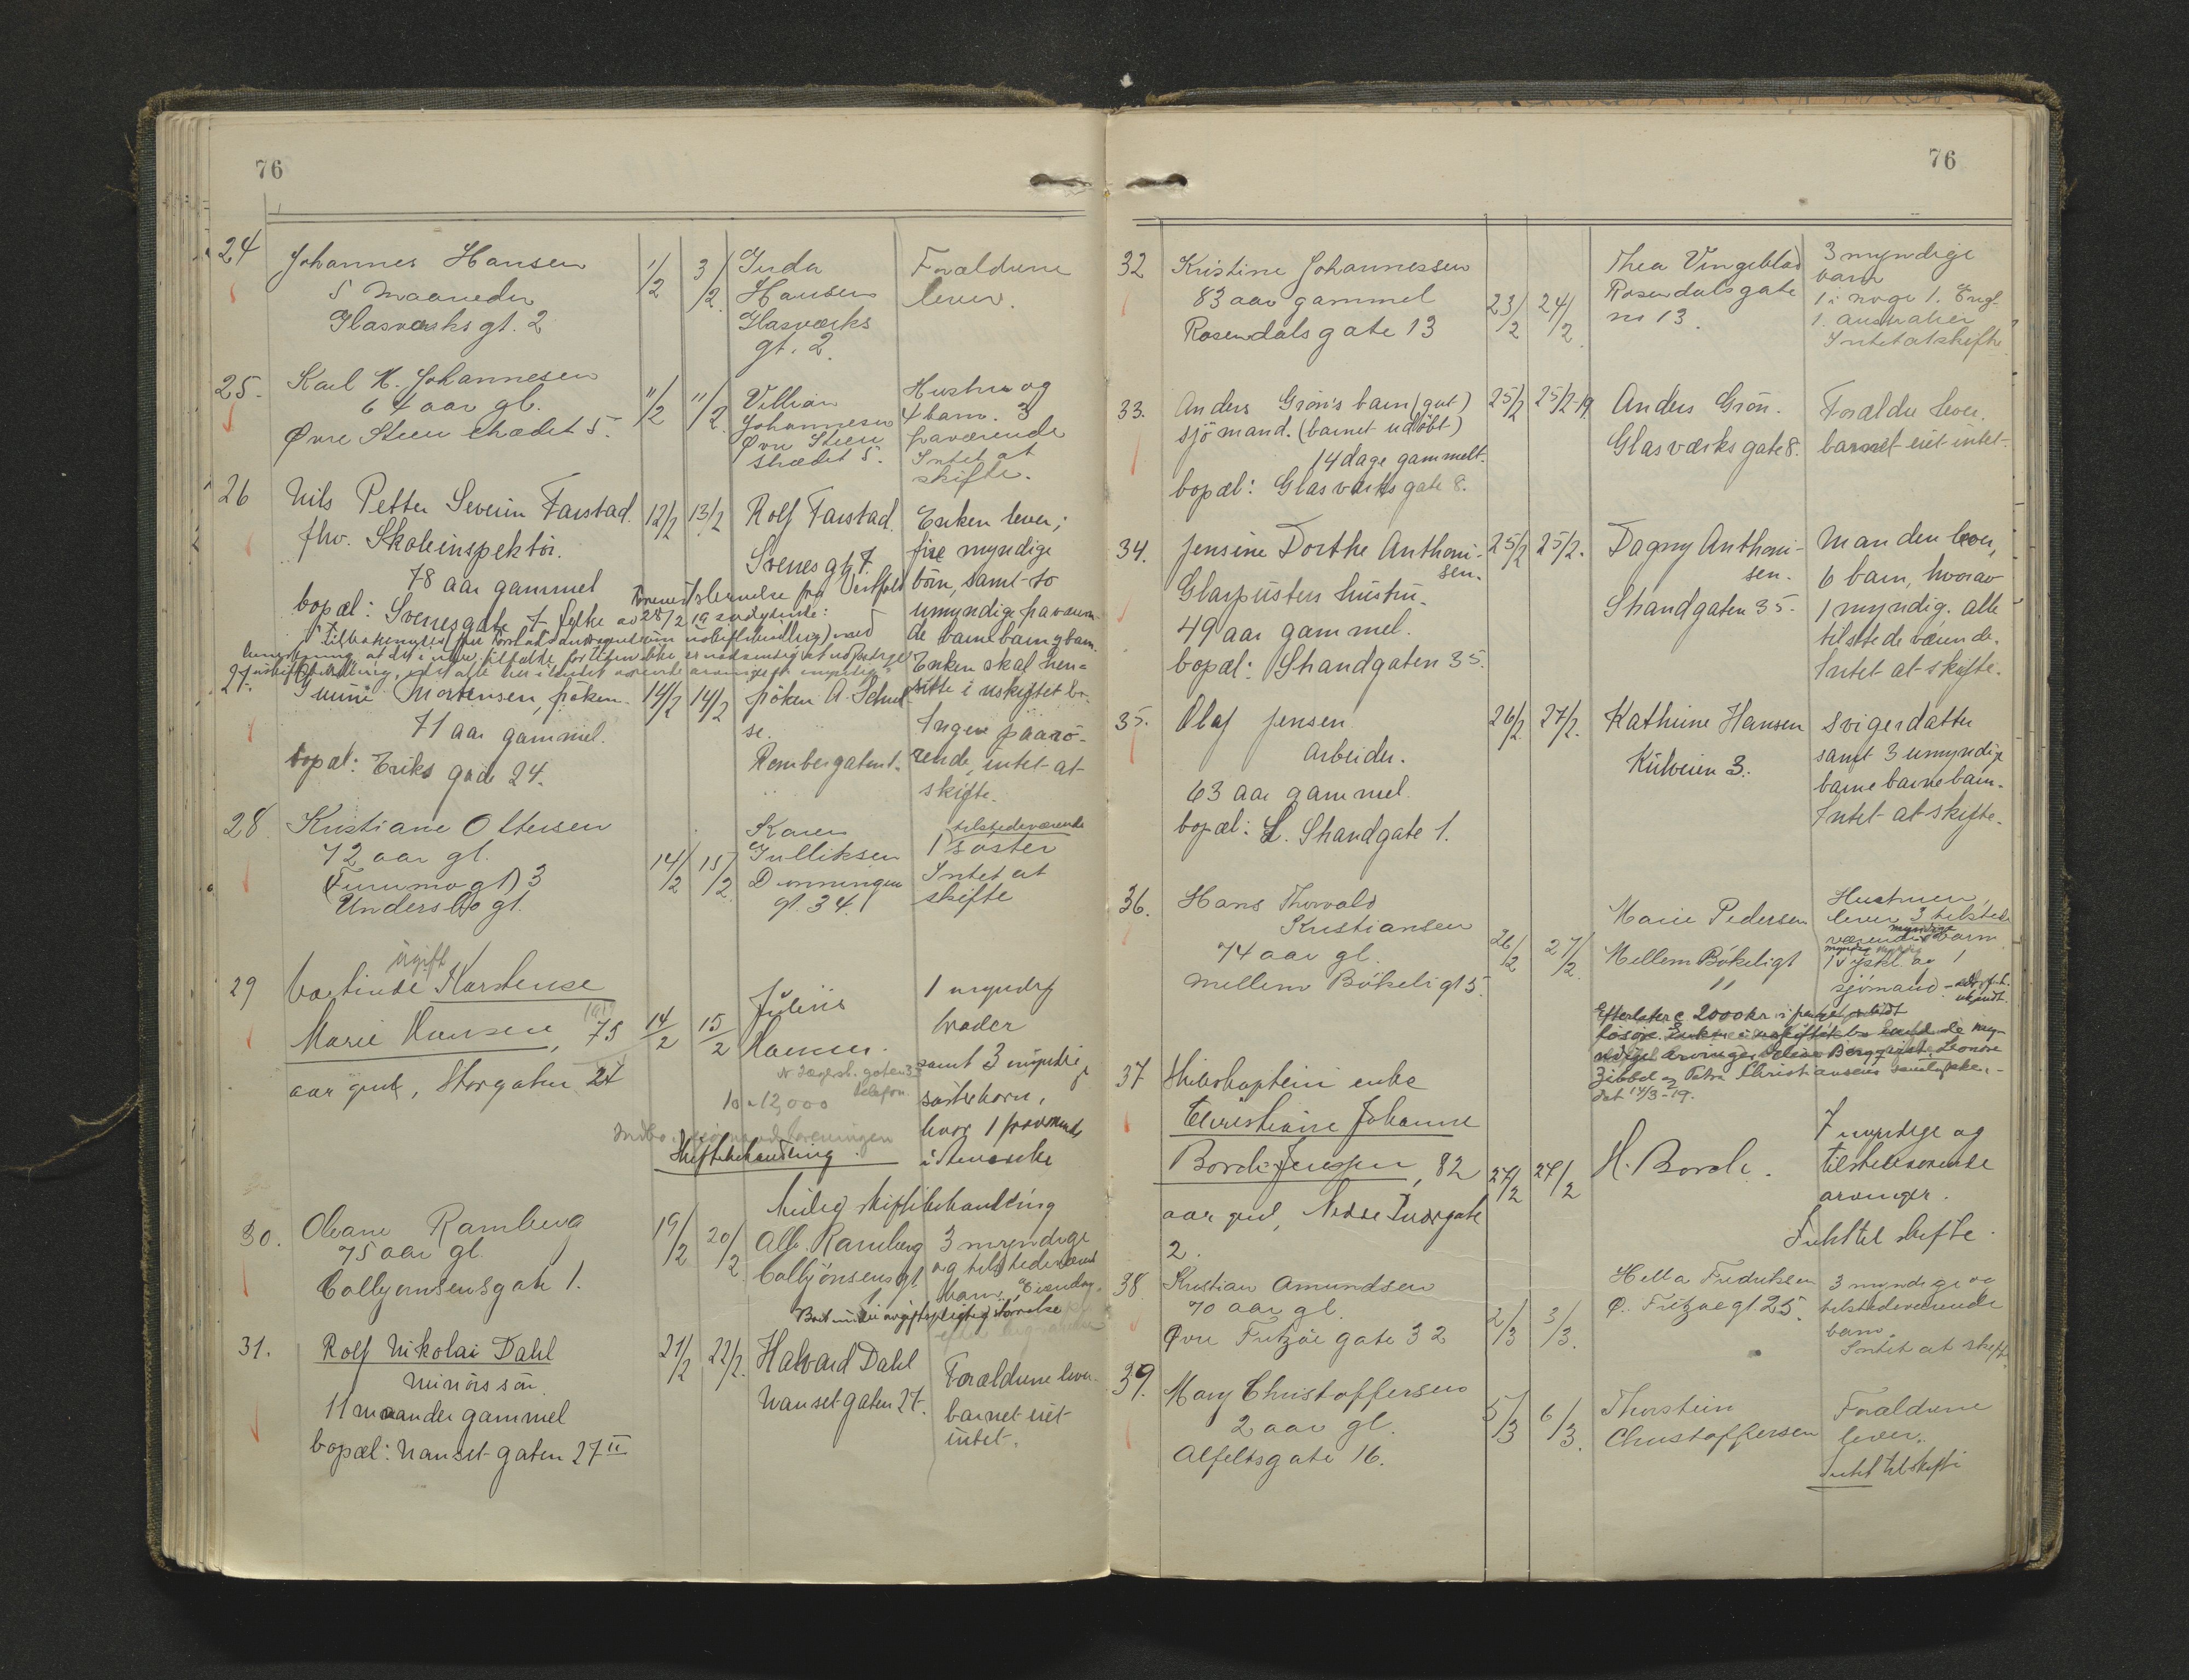 76
24 Johannes Hansen 1/2 3/2 Inda Forældrene
5 Maaneder Hansen lever.
Glasværksgt. 2 Glasværks
gt. 2.
25. Karl H. Johannesen 11/2 11/2 Villian Hustru og
64 aar gl. Johannesen 4 barn. 3
Øvre Steen strædet 5. Øvre Steen fraværende
strædet 5. Intet at
skifte.
26 Nils Petter Severin Farstad. 12/2 13/2 Rolf Farstad. Enken lever;
fhv. Skoleinspektør. Svenesgt 7. fire myndige
78 aar gammel børn, samt to
bopæl: Svenesgate 7 umyndige fraværen-
de barnebarn
Enken skal hen-
sitte i uskiftet bo.
27. Mortensen, frøken. 14/2 14/2 frøken A. Schul-
71 aar gammel. se. Ingen paarø-
bopæl: Eriks gade 24. Rombergatent. rende, intet at
skifte.
28. Kristiane Oltersen Karen tilstedeværende
72 aar gl. 14/2 15/2 Gulliksen 1 søster
(Furumogt) 3 Dronningen Intet at
Undersbo gt. gt. 34. skifte
ugift
29 Karstense 1 myndig
Marie Hansen, 75 14/2 15/2 Julius broder
aar gml, Storgaten 27 Hansen. samt 3 myndige
telefon søsterbørn,
10 a 12,000 hvor 1 fraværende
Skiftebehandling. i Amerika
skiftebehandling
30. Oleane Ramberg 19/2 20/2 Alb. Ramberg 3 myndige
75 aar gl. Colbjönsens gt og tilstedeværende
Colbjørnsensgate 1. barn.
31. Rolf Nikolai Dahl 21/2 22/2. Halvard Dahl Forældrene lever.
Minörs sön. Nanset gaten 27. barnet eiet
11 maander gammel intet.
bopæl: Nanset gaten 27 II
76
32 Kristine Johannessen Thea Vingeblad 3 myndige
83 aar gammel 23/2 24/2 Rosendalsgate barn
Rosendals gate 13 no 13. 1 i norge 1. Engl.
1. australien
Intet at skifte
33. Anders Grön's barn (gut) 25/2 25/2-19 Anders Grön. Forældre lever.
sjömand. (barnet udöbt) Glasværksgate 8. barnet eiet intet.
14 dage gammelt.
bopæl: Glasværks gate 8.
34. Jensine Dorthe Anthoni- 25/2 25/2. Dagny Anthoni- Manden lever,
sen. sen. 6 barn, hvorav
Glaspusters hustru. Strandgaten 35. 1 myndig. alle
49 aar gammel. tilstedeværende.
bopæl: Strandgaten 35. Intet at skifte.
35. Olaf Jensen 26/2 27/2. Kathrine Hansen Svigerdatter
Arbeider. Kulveien 3. samt 3 umyndige
63 aar gammel. barnebarn.
bopæl: L. Strandgate 1. Intet at skifte.
36. Hans Thorvald Marie Pedersen Hustruen
Kristiansen lever 3 tilstede
74 aar gl. 26/2 27/2. Mellem Bökeligt værende barn
mellem Bökeligt 5. " myndige
sjömand
Efterlater 2000 kr.
dat 14/3-19.
37. Skibskaptein enke
Christiane Johanne 7 myndige og
Borch-Jenssen, 82 27/2 27/2 H. Borch. tilstedeværende
aar gml, Nedre Torvgate arvinger.
2. Intet til skifte.
38. Kristian Amundsen 2/3 3/3. Hella Fredriksen 3 myndige og
70 aar gl. Ø. Fritzøegt. 25. tilstedeværende
Øvre Fritzøe gate 32 barn.
Intet at skifte
39. Mary Christoffersen 5/3 6/3. Thorstein Forældrene
2 aar gl. Christoffersen lever.
Alfeltsgate 16. Intet til skifte